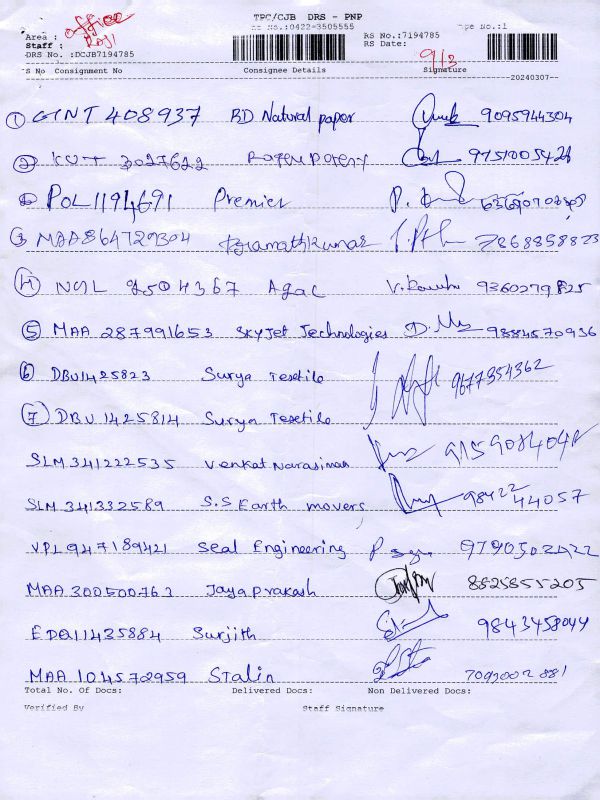 TPC/CJB DRS - PNP
No.:0422-3505555
Type No.:1
Area : office
Staff : Roji
RS No.:7194785
RS Date: 9/3
DRS No. :DCJB7194785
S No Consignment No Consignee Details Signature
20240307
1 GINT 408937 BD Natural paper 9095944304
2 KUT 3027622 9751005426
POL11914691 Premier
3 MAA864729304 7268858823
4 2504367 Agac 9360279825
5 MAA 287991653 SkyJet Technologies 9884570936
6 DBU1425823 Surya Texetile 9677354362
7 DBU 1425814 Surya Texetile
SLM341222535 Venkat Narasiman 9159084042
SLM 341332589 S.S Earth movers 98422 44057
VPL947189421 Seal Engineering 9790502422
MAA 300500763 Jayaprakash 8825855205
EDQ11435884 Surjith 9843458044
MAA 104572959 Stalin 7092002881
Total No. Of Docs: Delivered Docs: Non Delivered Docs:
Verified By Staff Signature